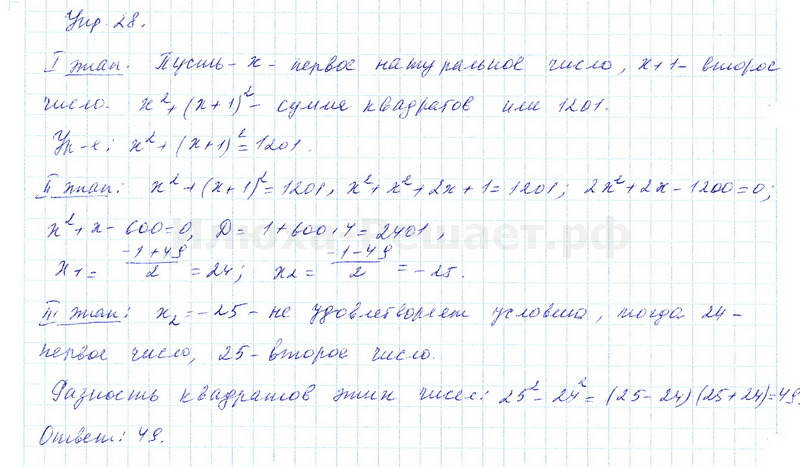 Упр. 28.
I этап. Пусть - x - первое натуральное число, x+1 - второе
число. x²+(x+1)² - сумма квадратов или 1201.
Ур-е: x²+(x+1)²=1201.
II этап: x²+(x+1)²=1201, x²+x²+2x+1=1201; 2x²+2x-1200=0;
x²+x-600=0, D=1+600·4=2401,
x₁= (-1+49)/2 =24; x₂= (-1-49)/2 = -25.
III этап: x₂=-25 - не удовлетворяет условию, тогда 24 -
первое число, 25 - второе число.
Разность квадратов этих чисел: 25²-24²=(25-24)(25+24)=49
Ответ: 49.
Илюха-Решает.рф